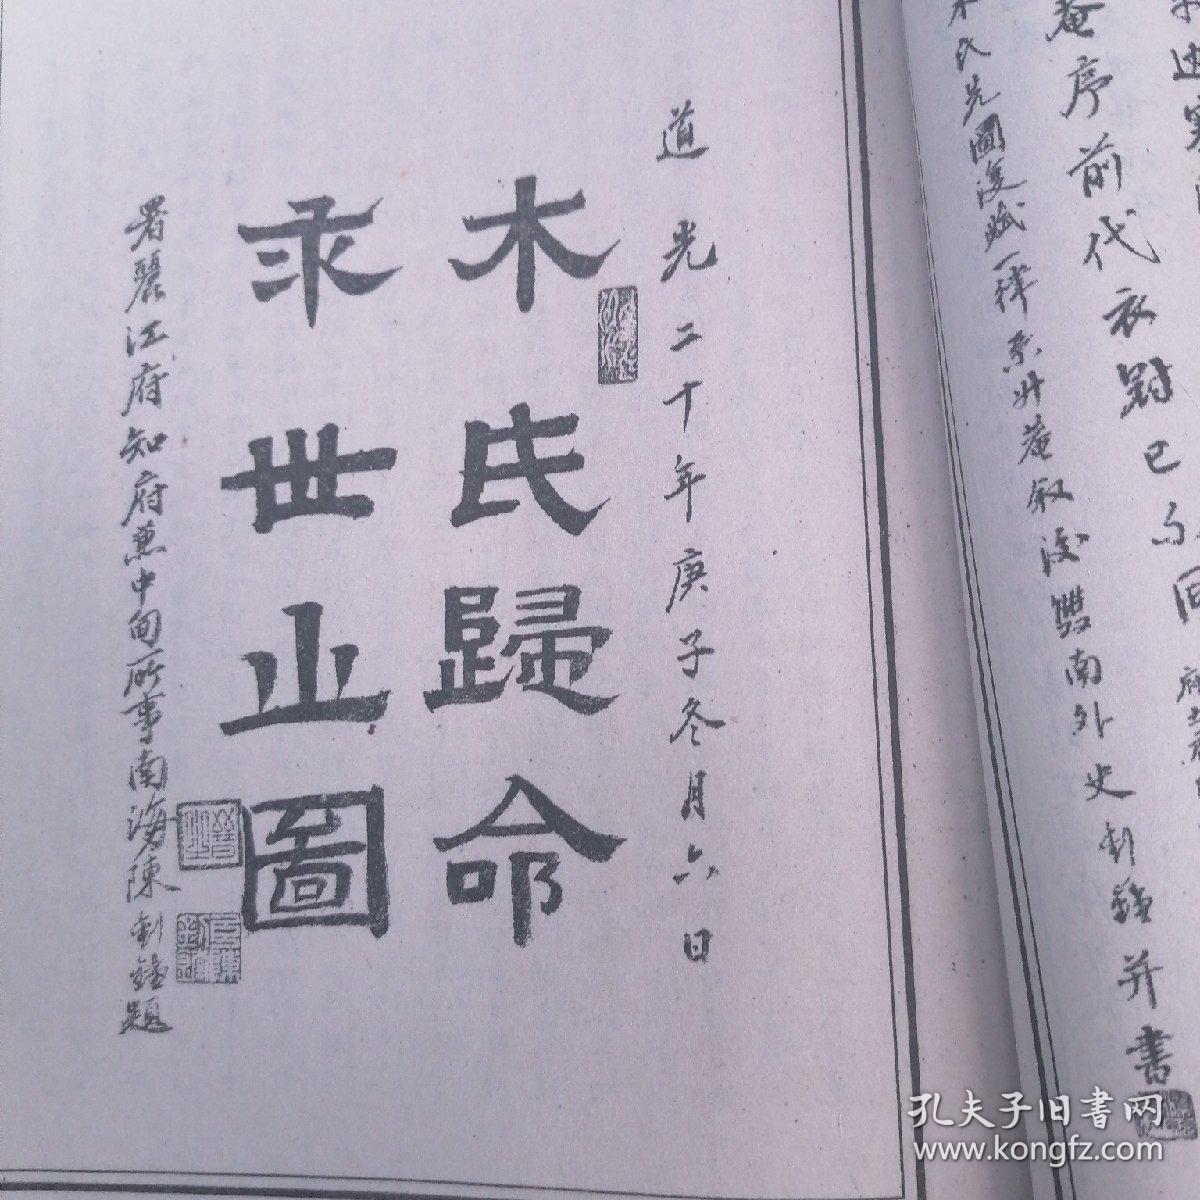 菴序前代衣冠已
木氏先圖復賦一律系升菴叙後雙南外史釗鏜并書
道光二十年庚子冬月六日
木氏歸命
求世止圖
署麗江府知府兼中甸所事南海陳釗鏜題
孔夫子旧書网
www.kongfz.com